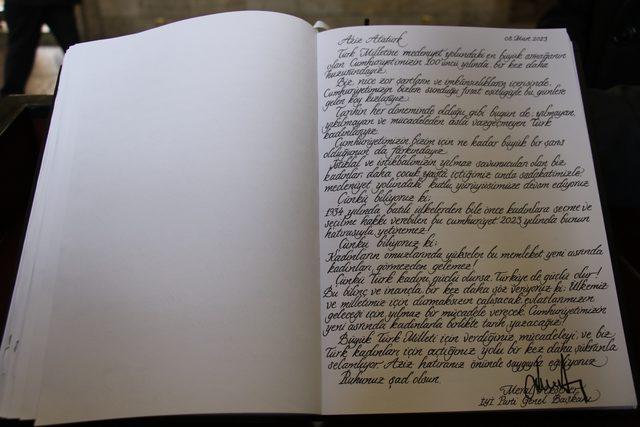 Aziz Atatürk 08 Mart 2023
Türk Milletine medeniyet yolundaki en büyük armağanın
olan Cumhuriyetimizin 100'üncü yılında bir kez daha
huzurundayız.
Biz nice zor şartların ve imkânsızlıkların içerisinde,
Cumhuriyetimizin bizlere sunduğu fırsat eşitliğiyle bu günlere
gelen köy kızlarıyız.
Tarihin her döneminde olduğu gibi bugün de yılmayan,
yıkılmayan ve mücadeleden asla vazgeçmeyen Türk
kadınlarıyız.
Cumhuriyetimizin bizim için ne kadar büyük bir şans
olduğunun da farkındayız.
İstiklal ve istikbalimizin yılmaz savunucuları olan biz
kadınlar, daha çocuk yaşta içtiğimiz anda sadakatimizle
medeniyet yolundaki kutlu yürüyüşümüze devam ediyoruz
Çünkü biliyoruz ki:
1934 yılında batılı ülkelerden bile önce kadınlara seçme ve
seçilme hakkı verebilen bu cumhuriyet 2023 yılında bunun
hatırasıyla yetinemez!
Çünkü biliyoruz ki:
Kadınların omuzlarında yükselen bu memleket yeni asrında
kadınları görmezden gelemez!
Çünkü Türk kadını güçlü olursa, Türkiye de güçlü olur!
Bu bilinç ve inançla bir kez daha söz veriyoruz ki; Ülkemiz
ve milletimiz için durmaksızın çalışacak, evlatlarımızın
geleceği için yılmaz bir mücadele verecek, Cumhuriyetimizin
yeni asrında kadınlarla birlikte tarih yazacağız!
Büyük Türk Milleti için verdiğiniz mücadeleyi, ve biz
Türk kadınları için açtığınız yolu bir kez daha şükranla
selamlıyor, Aziz hatıranız önünde saygıyla eğiliyoruz.
Ruhunuz şad olsun.
Meral Akşener
İYİ Parti Genel Başkanı